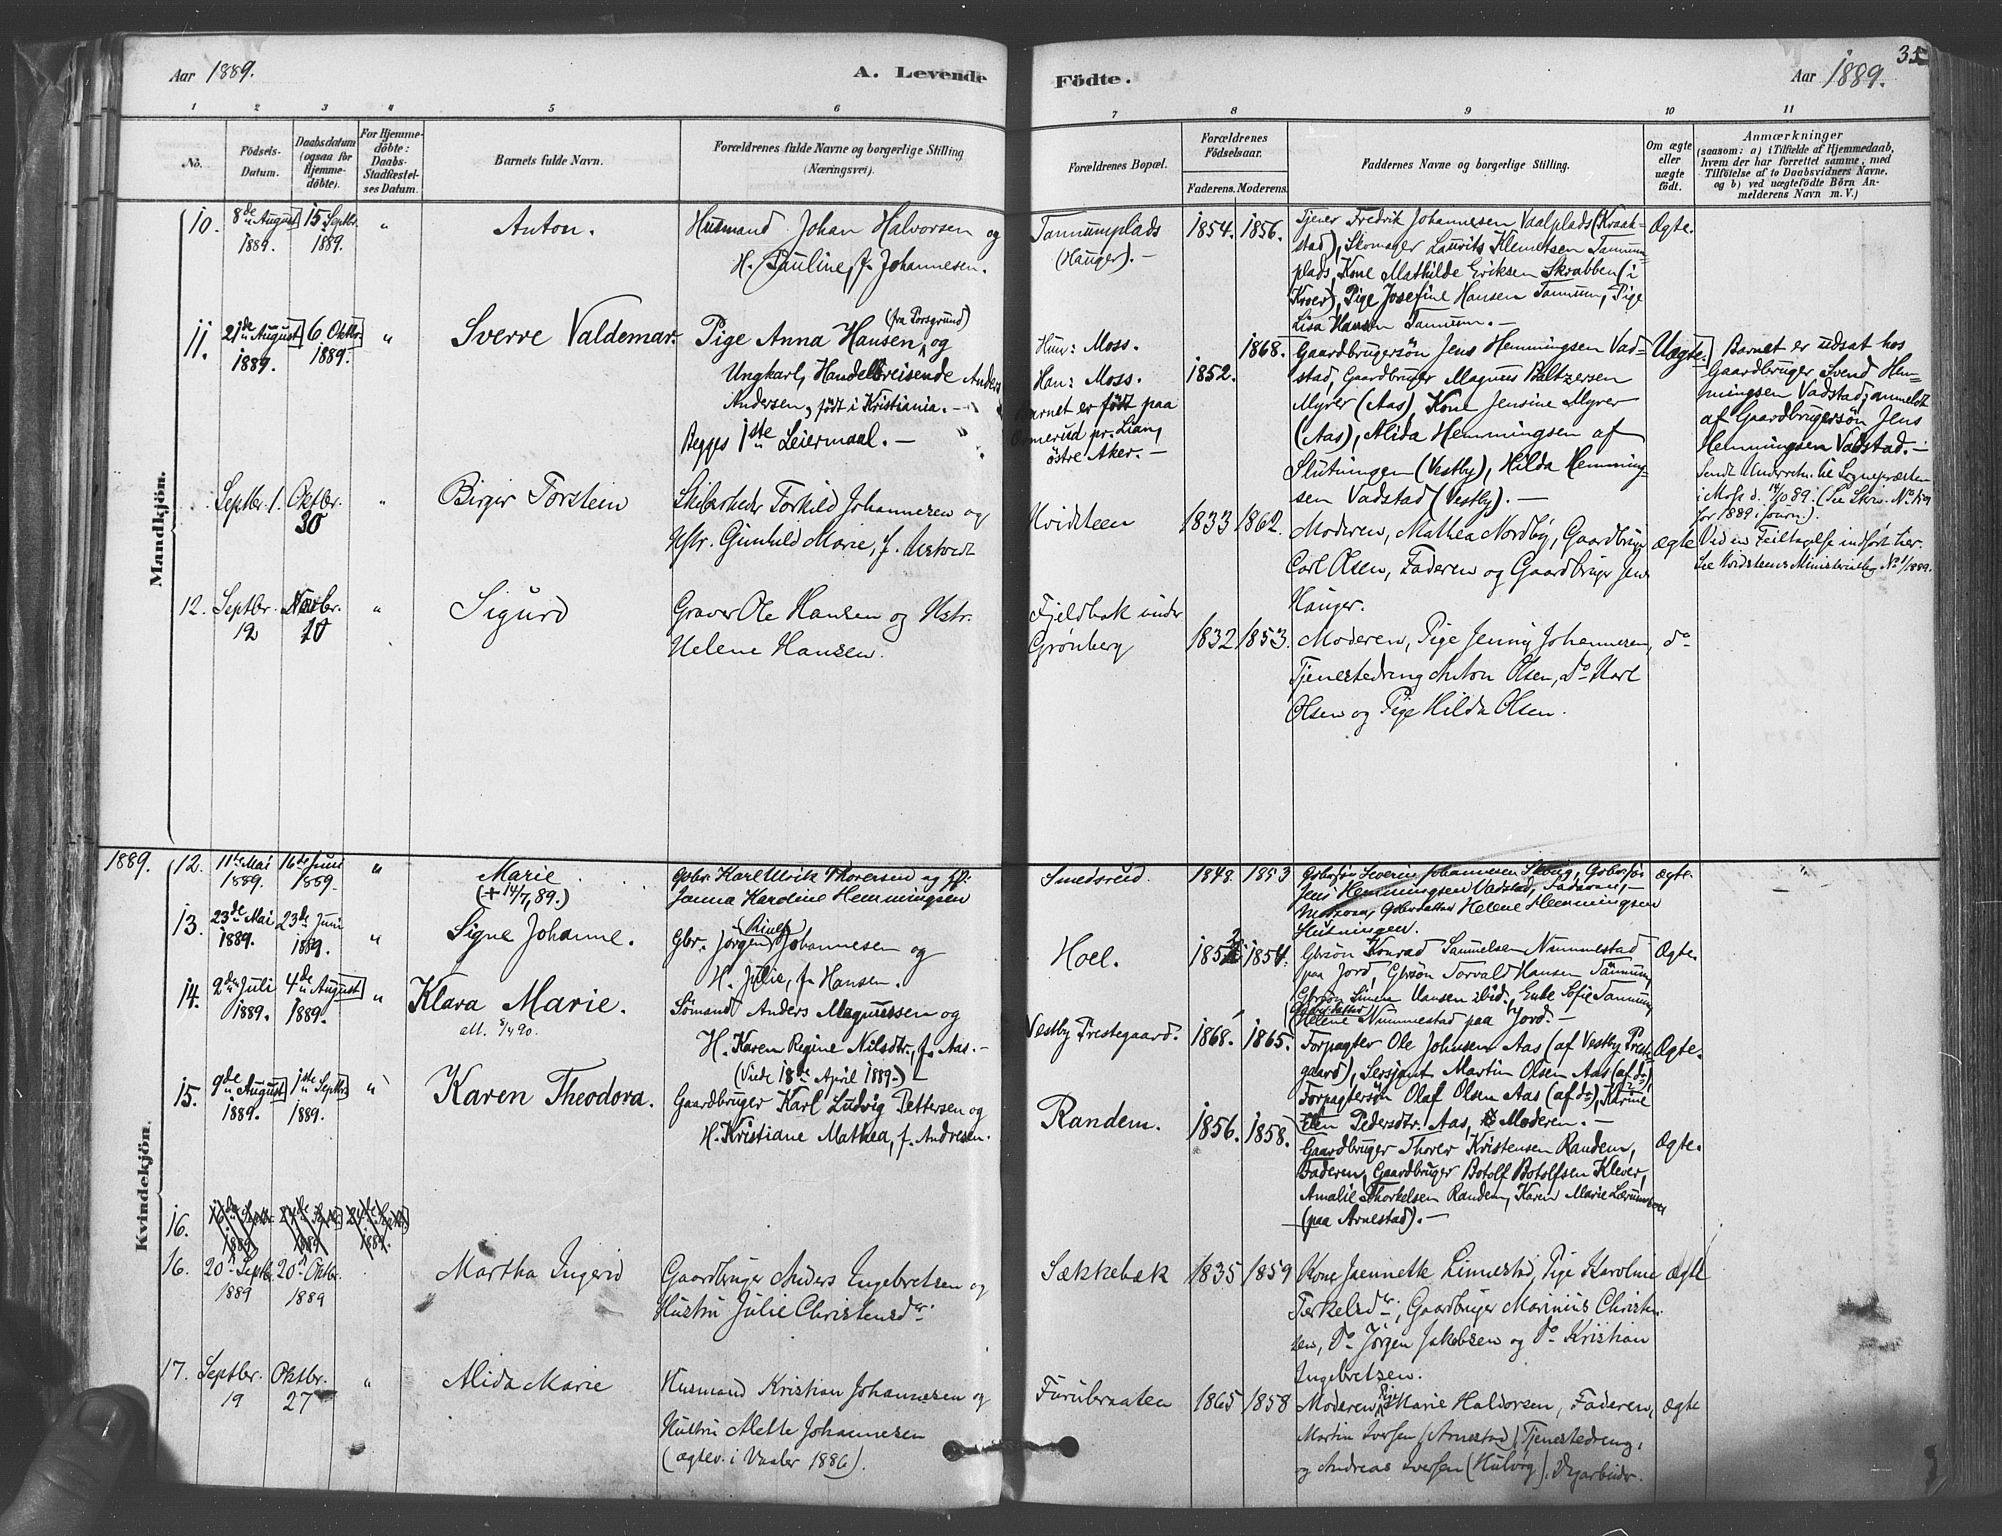 Aar 1889.
A. Levende
Födte.
Aar 1889.
35
1 2 3 4 5 6 7 8 9 10 11
No.
Födsels-
Datum.
Daabsdatum
(ogsaa for
Hjemme-
döbte).
For Hjemme-
döbte:
Daabs-
Stadfæstel-
ses Datum.
Barnets fulde Navn.
Forældrenes fulde Navne og borgerlige Stilling
(Næringsvei).
Forældrenes Bopæl.
Forældrenes
Födselsaar.
Faderens. Moderens.
Faddernes Navne og borgerlige Stilling.
Om ægte
eller
uægte
födt.
Anmærkninger
(saasom: a) i Tilfælde af Hjemmedaab,
hvem der har forrettet samme, med
Tilföielse af to Daabsvidners Navne,
og b) ved uægtefödte Börn An-
melderens Navn m. V.)
Mandkjön.
10.
8de August
1889.
15 Septbr.
1889.
"
Anton.
Husmand Johan Halvorsen og
H. Pauline, f. Johannesen.
Tannumplads
(Hauger). —
1854. 1856.
Tjener Fredrik Johannesen Vaalplads (Kraak-
stad), Skomager Laurits Klemetsen Tannum-
plads, Kone Mathilde Eriksen Skrabben (i
Kroer), Pige Josefine Hansen Tannum, Pige
Lisa Hansen Tannum. —
Ægte.
11.
21de August
1889.
6. Oktbr.
1889.
"
Sverre Valdemar.
(fra Porsgrund)
Pige Anna Hansen, og
Ungkarl, Handelsreisende Anders
Andersen, født i Kristiania. —
Begges 1ste Leiermaal. —
Hun: Moss.
Han: Moss.
Barnet er født paa
Ormerud pr. Lian,
östre Aker. —
1868.
1852.
Gaardbrugersön Jens Hemmingsen Vad-
stad, Gaardbruger Magnus Baltzersen
Myrer (Aas), Kone Jensine Myrer
(Aas), Alida Hemmingsen af
Slutningen (Vestby), Hilda Hemming-
sen Vadstad (Vestby). —
Uægte.
Barnet er udsat hos
Gaardbruger Svend Hem-
mingsen Vadstad; anmeldt
af Gaardbrugersøn Jens
Hemmingsen Vadstad. —
Sendt Underretn. til Sognepræsten
i Moss d. 14/10 89. (Se Skr. No
for 1889 i Journ.).
Septbr. 1.
Oktbr.
30
"
Birger Torstein
Torkild Johannesen og
Hstr. Gunhild Marie, f.
Hvidsteen
1833 1862.
Moderen, Mathea Nordby, Gaardbruger
Carl Olsen, Faderen og Gaardbruger Jens
Hauger.
ægte
Ved en Feiltagelse indført her.
Se Hvidsteens Ministerialbog No 1/1889.
12.
Septbr.
12
Novbr.
10
"
Sigurd
Graver Ole Hansen og Hstr.
Helene Hansen.
Fjeldbak under
Grønberg
1832 1853.
Moderen, Pige Jenny Johannesen,
Tjenestedreng Anton Olsen, Do Karl
Olsen og Pige Hilda Olsen.
do
Kvindekjön.
1889.
12.
11te Mai
1889.
16de Juni
1889.
"
Marie
(+ 14/7, 89.)
Gbbr. Karl Ulrik Thoresen og H.
Janna Karoline Hemmingsen
Smedsrud
1848. 1853
Gbbrsøn Severin Johannesen Skoug, Gbbrsøn
Jens Hemmingsen Vadstad, Faderen, —
Moderen, Gbbrdatter Helene Hemmingsen
Slutningen.
ægte.
13.
23de Mai
1889.
23de Juni
1889.
"
Signe Johanne.
Gbr. Jørgen Johannesen og
H. Julie, f. Hansen.
Hoel.
185 1854.
Gbrsön Konrad Samuelsen Nummestad
paa Jord, Gbrsön Torvald Hansen Tannum,
Gbrsön Simen Hansen ibid., Enke Sofie Tannum,
(Gbrdatter)
Helene Nummestad paa Jord. —
Ægte.
14.
2de Juli
1889.
4de August
1889.
"
Klara Marie.
att. 8/4 90.
Sømand Anders Magnussen og
H. Karen Regine Nilsdtr., f. Aas. —
(Viede 18de April 1889.) —
Vestby Prestegaard.
1868. 1865.
Forpagter Ole Johnsen Aas (af Vestby Preste-
gaard), Sersjant Martin Olsen Aas (af do),
Forpagtersön Olaf Olsen Aas (af do), Karine
Elen Pedersdtr. Aas, Moderen. —
Ægte.
15.
9de August
1889.
1ste Septbr.
1889.
"
Karen Theodora.
Gaardbruger Karl Ludvig Pettersen og
H. Kristiane Mathea, f. Andresen.
Randem.
1856. 1858.
Gaardbruger Thorer Kristensen Randem,
Faderen, Gaardbruger Botolf Botolfsen Klever,
Amalie Thorkelsen Randem, Karen Marie
(paa Arnestad). —
Ægte.
16.
16.
20n Septbr.
1889
20n Oktbr.
1889
Martha Ingerid
Gaardbruger Anders Ingebretsen og
Hustru Julie Christensdr.
Sækkebæk
1835 1859
Kone Jaennette Limestad, Pige Karoline
Terkelsdr, Gaardbruger Marinius Christen-
sen, Do Jörgen Jakobsen og Do Kristian
Ingebretsen.
Ægte
17.
Septbr.
19
Oktbr.
27
"
Alida Marie
Husmand Kristian Johannesen og
Hustru Alette Johannesen
(ægtev. i Vaaler 1886).
Furubraaten
1865 1858
Moderen, Pige Marie Haldorsen, Faderen,
Martin Iversen (Arnestad), Tjenestedreng,
og Andreas Iversen (Hulvog),
ægte